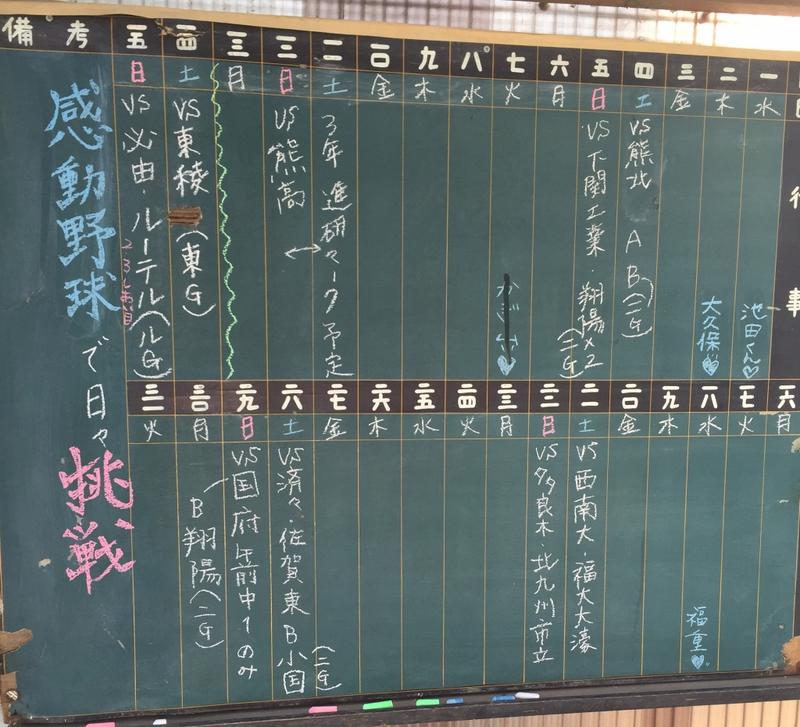 行事
一 水 池田くん♡
二 木 大久保♡
三 金
四 土 VS 熊北 A B(二G)
五 日 VS 下関工業・翔陽×2 (二G)
六 月
七 火
八 水
九 木
一〇 金
一一 土 3年 進研マーク予定
一二 日 VS 熊高
一三 月
一四 土 VS 東稜 (東G)
一五 日 VS 必由・ルーテル(ルG)
備考
感動野球
で日々
挑戦
一六 月
一七 火
一八 水 福重♡
一九 木
二〇 金
二一 土 VS 西南大・福大大濠
二二 日 VS 多良木・北九州市立
二三 月
二四 火
二五 水
二六 木
二七 金
二八 土 VS 済々・佐賀東 B小国 (二G)
二九 日 VS 国府 午前中1のみ
三〇 月 B翔陽(二G)
三一 火